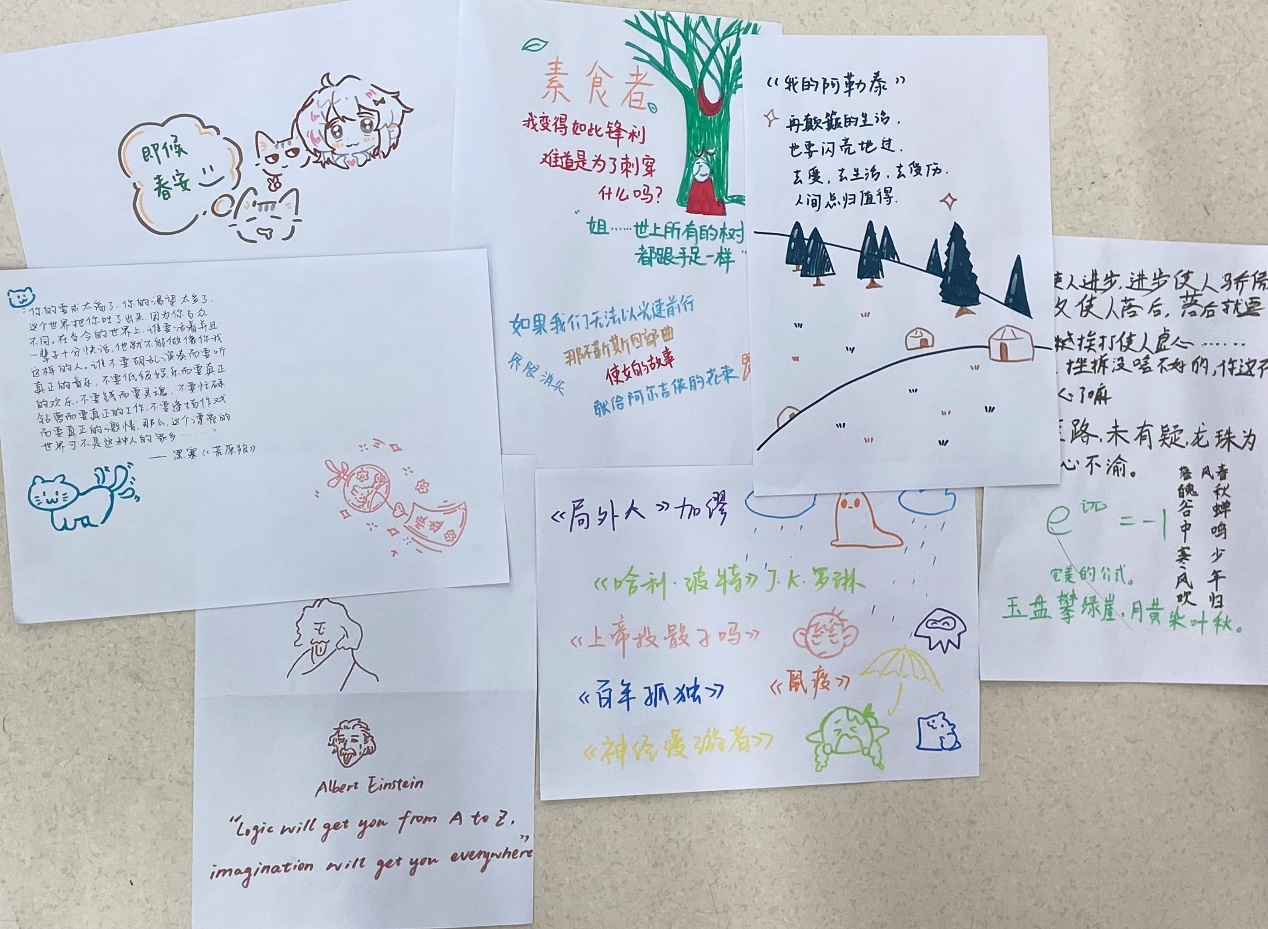 即候
春安
素食者
我变得如此锋利
难道是为了刺穿
什么吗?
"姐……世上所有的树
都跟手足一样"
如果我们无法以光速前行
那不勒斯四部曲
界限消失
使女的故事
献给阿尔吉侬的花束
《我的阿勒泰》
再颠簸的生活,
也要闪亮地过.
去爱,去生活,去受伤.
人间总归值得.
你的要求太高了,你的渴望太多了,
这个世界把你吐了出来,因为你与众
不同。在当今的世界上,谁要活着并且
一辈子十分快活,他就不能做像你我
这样的人。谁不要胡乱演奏而要听
真正的音乐,不要低级娱乐而要真正
的欢乐,不要钱而要灵魂,不要忙碌
钻营而要真正的工作,不要逢场作戏
而要真正的激情,那么,这个漂亮的
世界可不是这种人的家乡……
——黑塞《荒原狼》
使人进步,进步使人骄傲
又使人落后,落后就要
挨打使人虚心……
挫折没啥不好的,你这不
心了嘛
路,未有疑,龙珠为
心不渝。
春秋蝉鸣少年归
谷中寒风吹
e^iπ = -1
完美的公式。
玉盘攀绿崖,月黄染叶秋。
《局外人》加缪
《哈利·波特》J.K.罗琳
《上帝掷骰子吗》
《百年孤独》
《鼠疫》
《神经漫游者》
Albert Einstein
"Logic will get you from A to Z,
imagination will get you everywhere"